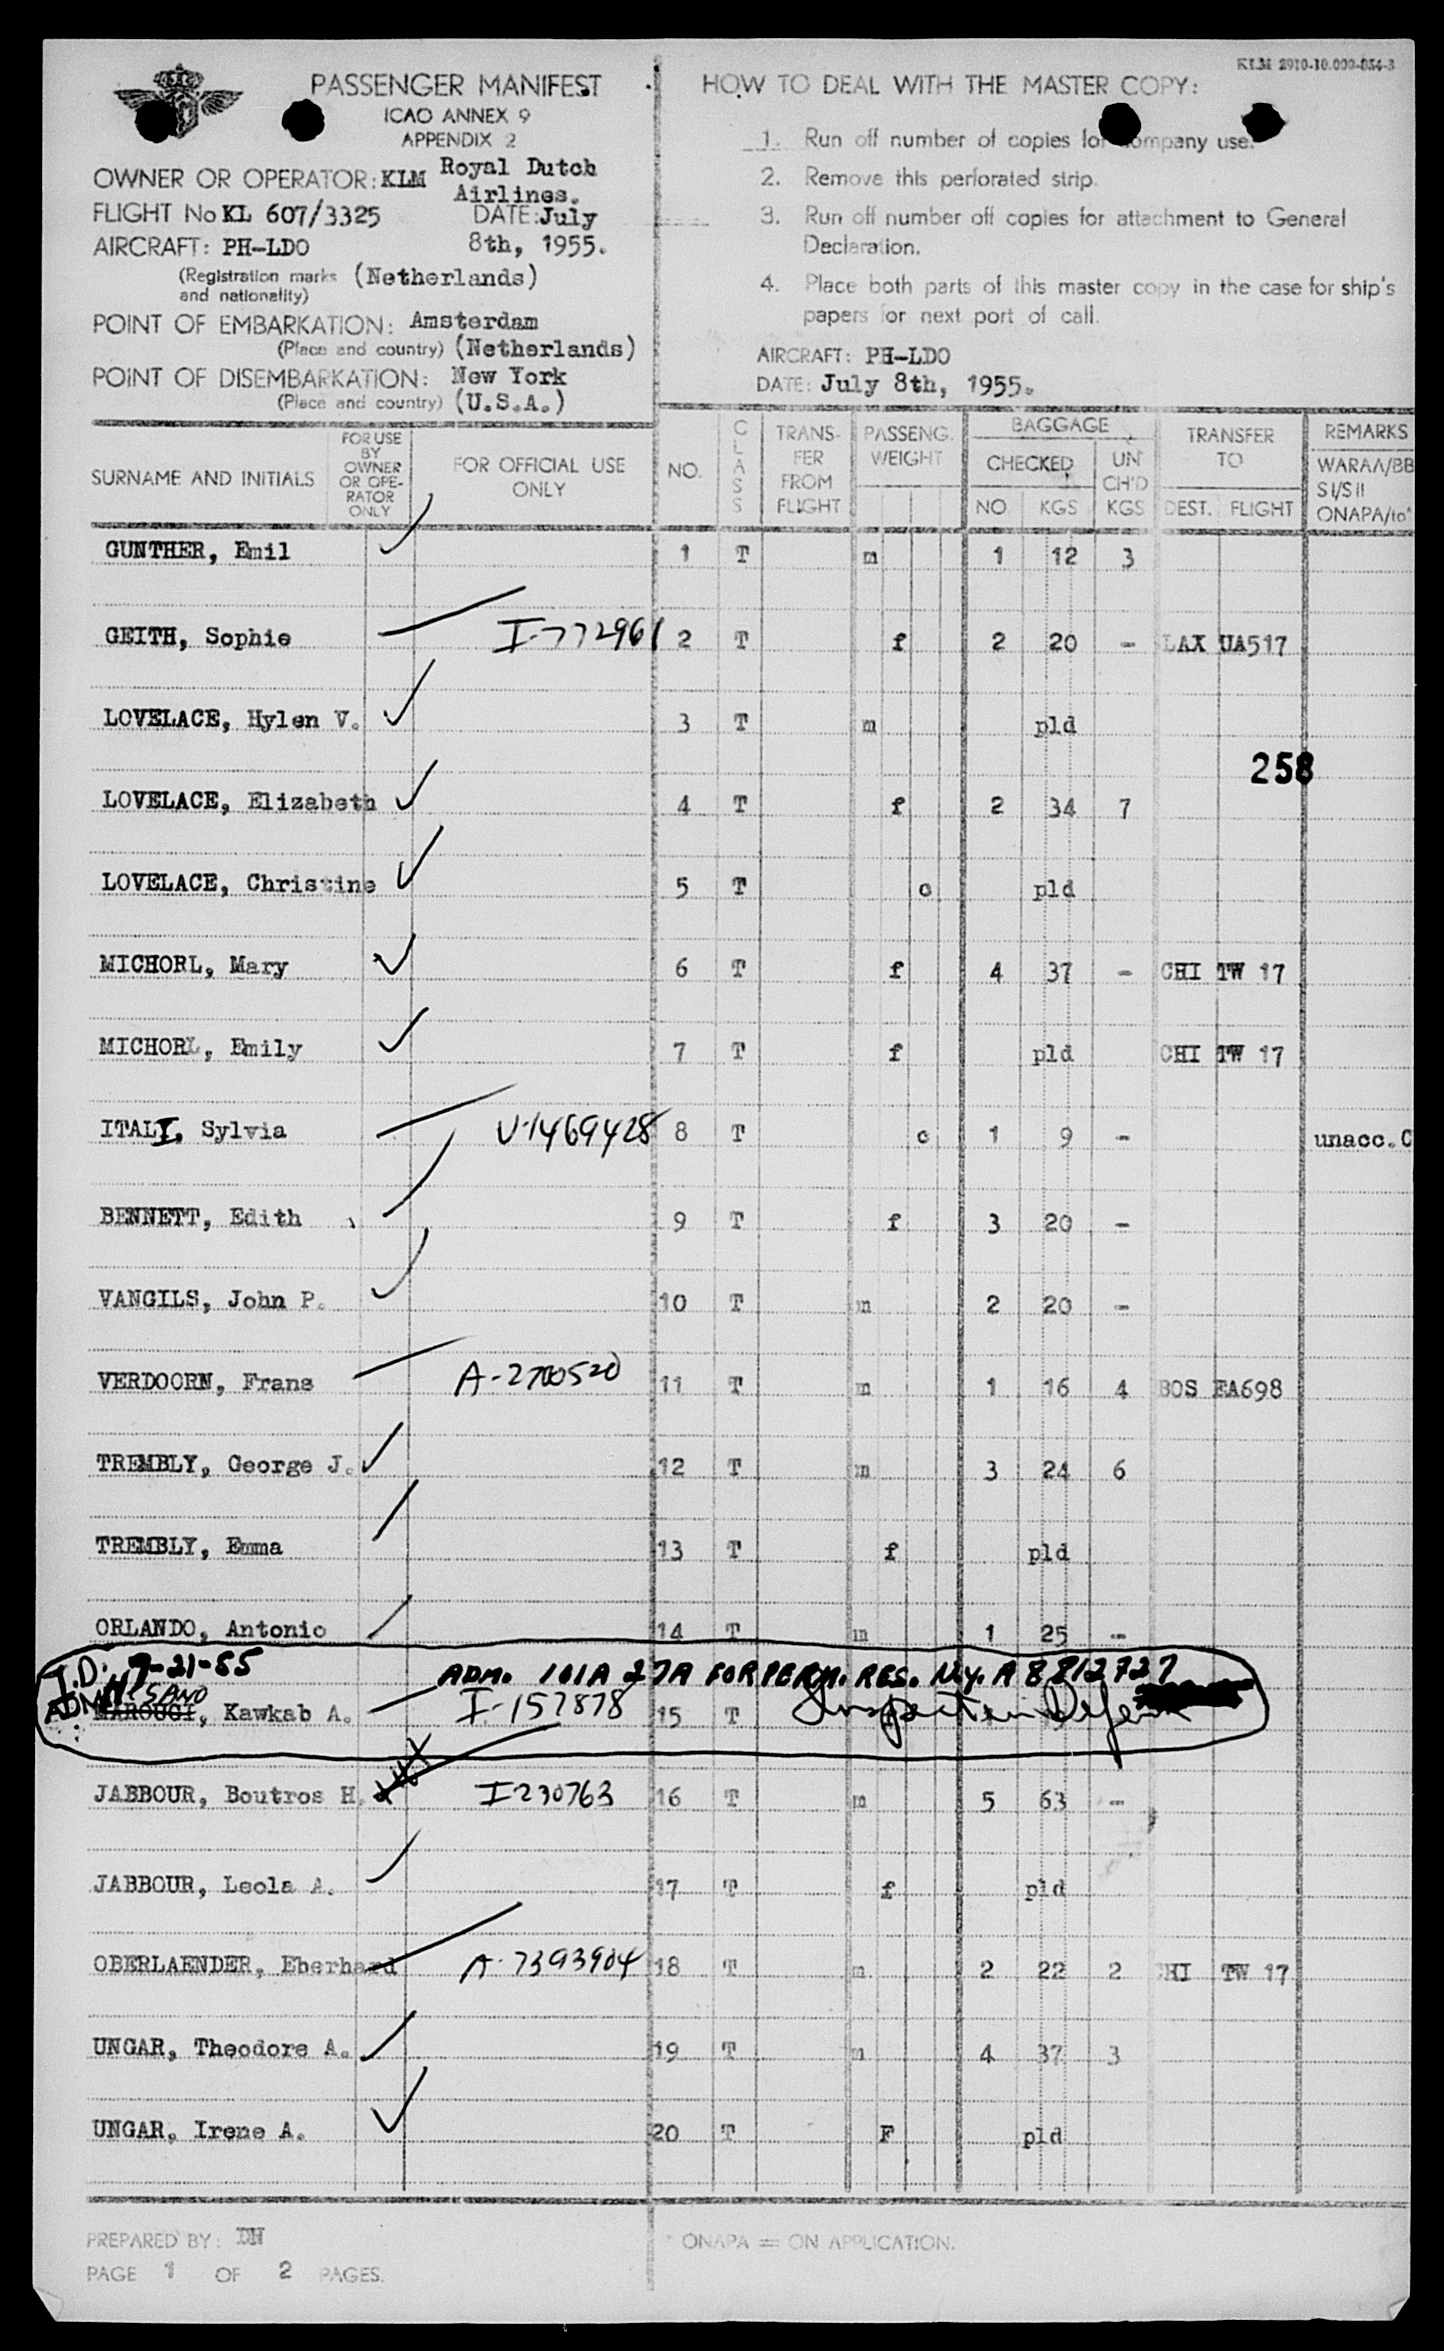 KLM 2910-10.000-854-3
PASSENGER MANIFEST
ICAO ANNEX 9
APPENDIX 2
OWNER OR OPERATOR: KLM Royal Dutch
Airlines.
FLIGHT No KL 607/3325 DATE: July
8th, 1955.
AIRCRAFT: PH-LDO
(Registration marks (Netherlands)
and nationality)
POINT OF EMBARKATION: Amsterdam
(Place and country) (Netherlands)
POINT OF DISEMBARKATION: New York
(Place and country) (U.S.A.)
HOW TO DEAL WITH THE MASTER COPY:
1. Run off number of copies for company use.
2. Remove this perforated strip.
3. Run off number off copies for attachment to General
Declaration.
4. Place both parts of this master copy in the case for ship's
papers for next port of call.
AIRCRAFT: PH-LDO
DATE: July 8th, 1955.
SURNAME AND INITIALS
FOR USE
BY
OWNER
OR OPE-
RATOR
ONLY
FOR OFFICIAL USE
ONLY
NO.
CLASS
TRANS-
FER
FROM
FLIGHT
PASSENG.
WEIGHT
BAGGAGE
CHECKED
NO KGS
UN
CH'D
KGS
TRANSFER
TO
DEST. FLIGHT
REMARKS
WARAA/BB
SI/SII
ONAPA/to*
GUNTHER, Emil 1 T m 1 12 3
GEITH, Sophie I-772961 2 T f 2 20 - LAX UA517
LOVELACE, Hylen V. 3 T m pld
258
LOVELACE, Elizabeth 4 T f 2 34 7
LOVELACE, Christine 5 T c pld
MICHORL, Mary 6 T f 4 37 - CHI TW 17
MICHORL, Emily 7 T f pld CHI TW 17
ITALI, Sylvia V-1469428 8 T c 1 9 - unacc.C
BENNETT, Edith 9 T f 3 20 -
VANGILS, John P. 10 T m 2 20 -
VERDOORN, Frans A-2700520 11 T m 1 16 4 BOS EA698
TREMBLY, George J. 12 T m 3 24 6
TREMBLY, Emma 13 T f pld
ORLANDO, Antonio 14 T m 1 25 -
I.D. 7-21-55 ADM. 101A 27A FOR PERM. RES. N.Y. A 8812727
ADM
MAROUGI, Kawkab A. I-157878 15 T Inspection
JABBOUR, Boutros H. I-230763 16 T m 5 63 -
JABBOUR, Leola A. 17 T f pld
OBERLAENDER, Eberhard A-7393904 18 T m 2 22 2 CHI TW 17
UNGAR, Theodore A. 19 T m 4 37 3
UNGAR, Irene A. 20 T F pld
PREPARED BY: DH
* ONAPA = ON APPLICATION.
PAGE 1 OF 2 PAGES.